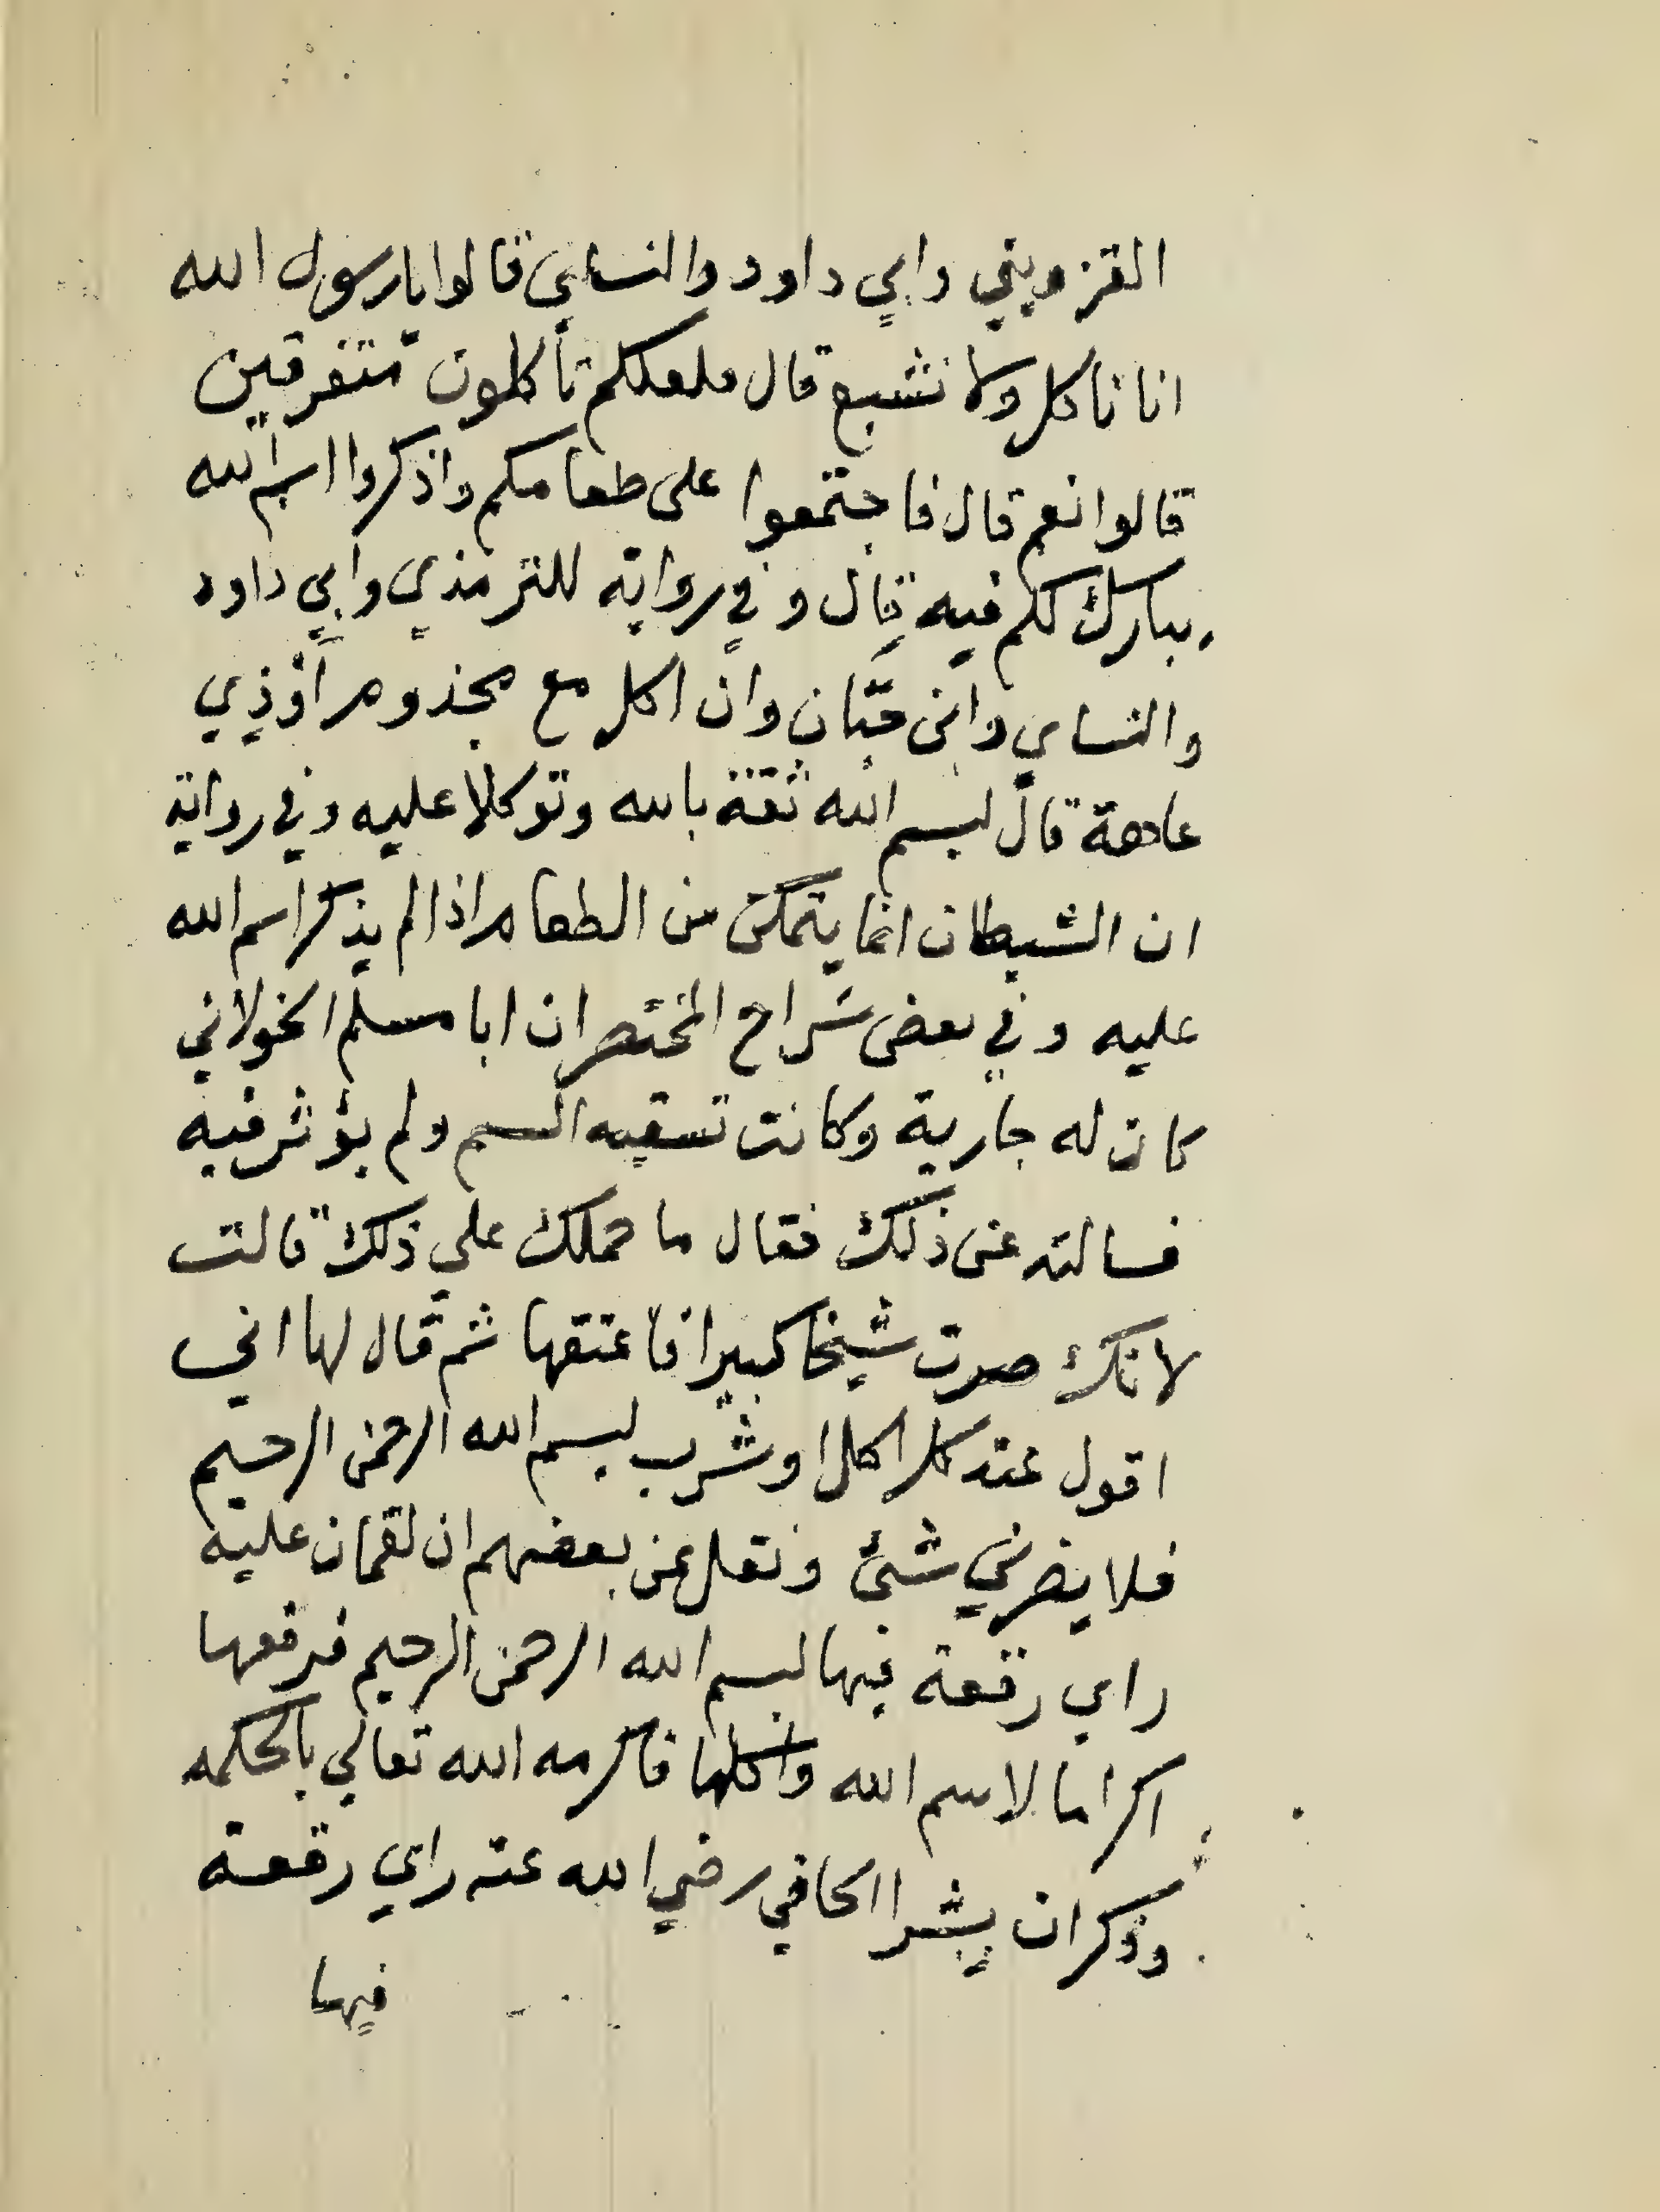 القزويني وابي داود والنساي قالوا يا رسول الله
انا ناكل ولا نشبع قال فلعلكم تأكلون متفرقين
قالوا نعم قال فاجتمعوا على طعامكم واذكروا اسم الله
يبارك لكم فيه قال وفي رواية للترمذي وابي داود
والنساي وابن حبّان وان اكل مع مجذوم أو ذي
عاهة قال بسم الله ثقة بالله وتوكلا عليه وفي رواية
ان الشيطان انما يتمكن من الطعام اذا لم يذكر اسم الله
عليه وفي بعض شراح المختصر ان ابا مسلم الخولاني
كان له جارية وكانت تسقيه السم ولم يؤثر فيه
فسالته عن ذلك فقال ما حملك علي ذلك قالت
لانك صرت شيخا كبيرا فاعتقها ثم قال لها اني
اقول عند كل اكل او شرب بسم الله الرحمن الرحيم
فلا يضرني شئ ونقل عن بعضهم ان لقمان عليه
راي رقعة فيها بسم الله الرحمن الرحيم فرفعها
اكراما لاسم الله واكلها فاكرمه الله تعالي بالحكمه
وذكر ان بشرا الحافي رضي الله عنه راي رقعة
فيها